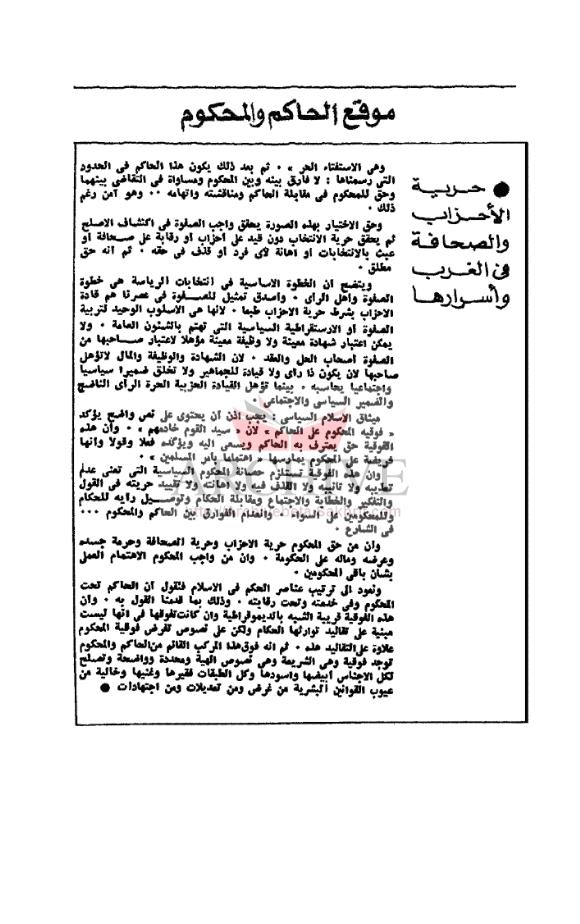 موقع الحاكم والمحكوم
● حرية
الأحزاب
والصحافة
فى الغرب
وأسرارها
وهى الاستفتاء الحر » ٠ ثم بعد ذلك يكون هذا الحاكم فى الحدود
التى رسمناها : لا فارق بينه وبين المحكوم ومساواة فى التقاضى بينهما
وحق للمحكوم فى مقابلة الحاكم ومناقشته واتهامه ٠٠ وهو آمن رغم
ذلك ٠
وحق الاختيار بهذه الصورة يحقق واجب الصفوة فى اكتشاف الاصلح
ثم يحقق حرية الانتخاب دون قيد على أحزاب أو رقابة على صحافة أو
عبث بالانتخابات أو اهانة لأى فرد أو قذف فى حقه ٠ ثم انه حق
مطلق ٠
ويتضح أن الخطوة الاساسية فى انتخابات الرياسة هى خطوة
الصفوة وأهل الرأى ٠ وأصدق تمثيل للصفوة فى عصرنا هم قادة
الاحزاب بشرط حرية الاحزاب طبعا ٠ لانها هى الاسلوب الوحيد لتربية
الصفوة أو الارستقراطية السياسية التى تهتم بالشئون العامة ٠ ولا
يمكن اعتبار شهادة معينة ولا وظيفة معينة مؤهلا لاعتبار صاحبها من
الصفوة أصحاب الحل والعقد ٠ لان الشهادة والوظيفة والمال لاتؤهل
صاحبها لان يكون ذا رأى ولا قيادة للجماهير ولا تخلق ضميرا سياسيا
واجتماعيا يحاسبه ٠ بينما تؤهل القيادة الحزبية الحرة الرأى الناضج
والضمير السياسى والاجتماعى ٠
ميثاق الاسلام السياسى : يجب اذن أن يحتوى على نص واضح يؤكد
« فوقيه المحكوم على الحاكم » لان « سيد القوم خادمهم » ٠ وأن هذه
الفوقية حق يعترف به الحاكم ويسعى اليه ويؤكده فعلا وقولا وانها
فريضة على المحكوم يمارسها « اهتماما بأمر المسلمين » ٠
وان هذه الفوقية تستلزم حصانة المحكوم السياسية التى تعنى عدم
تعذيبه ولا تأنيبه ولا القذف فيه ولا اهانته ولا تقييد حريته فى القول
والتفكير والخطابة والاجتماع ومقابلة الحكام وتوصيل رأيه للحكام
وللمحكومين على السواء ٠ وانعدام الفوارق بين الحاكم والمحكوم ٠٠٠
فى الشارع ٠
وأن من حق المحكوم حرية الاحزاب وحرية الصحافة وحرمة جسده
وعرضه وماله على الحكومة ٠ وان من واجب المحكوم الاهتمام العملى
بشأن باقى المحكومين ٠
ونعود الى ترتيب عناصر الحكم فى الاسلام فنقول أن الحاكم تحت
المحكوم وفى خدمته وتحت رقابته ٠ وذلك بما قدمنا القول به ٠ وأن
هذه الفوقية قريبة الشبه بالديموقراطية وان كانت تفوقها فى أنها ليست
مبنية على تقاليد توارثها الحكام ولكن على نصوص تفرض فوقية المحكوم
علاوة على التقاليد هذه ٠ ثم انه فوق هذا المركب القائم من الحاكم والمحكوم
توجد فوقية وهى الشريعة وهى نصوص الهية ومحددة وواضحة وتصلح
لكل الاجناس أبيضها وأسودها وكل الطبقات فقيرها وغنيها وخالية من
عيوب القوانين البشرية من غرض ومن تعديلات ومن اجتهادات ●
ARCHIVE